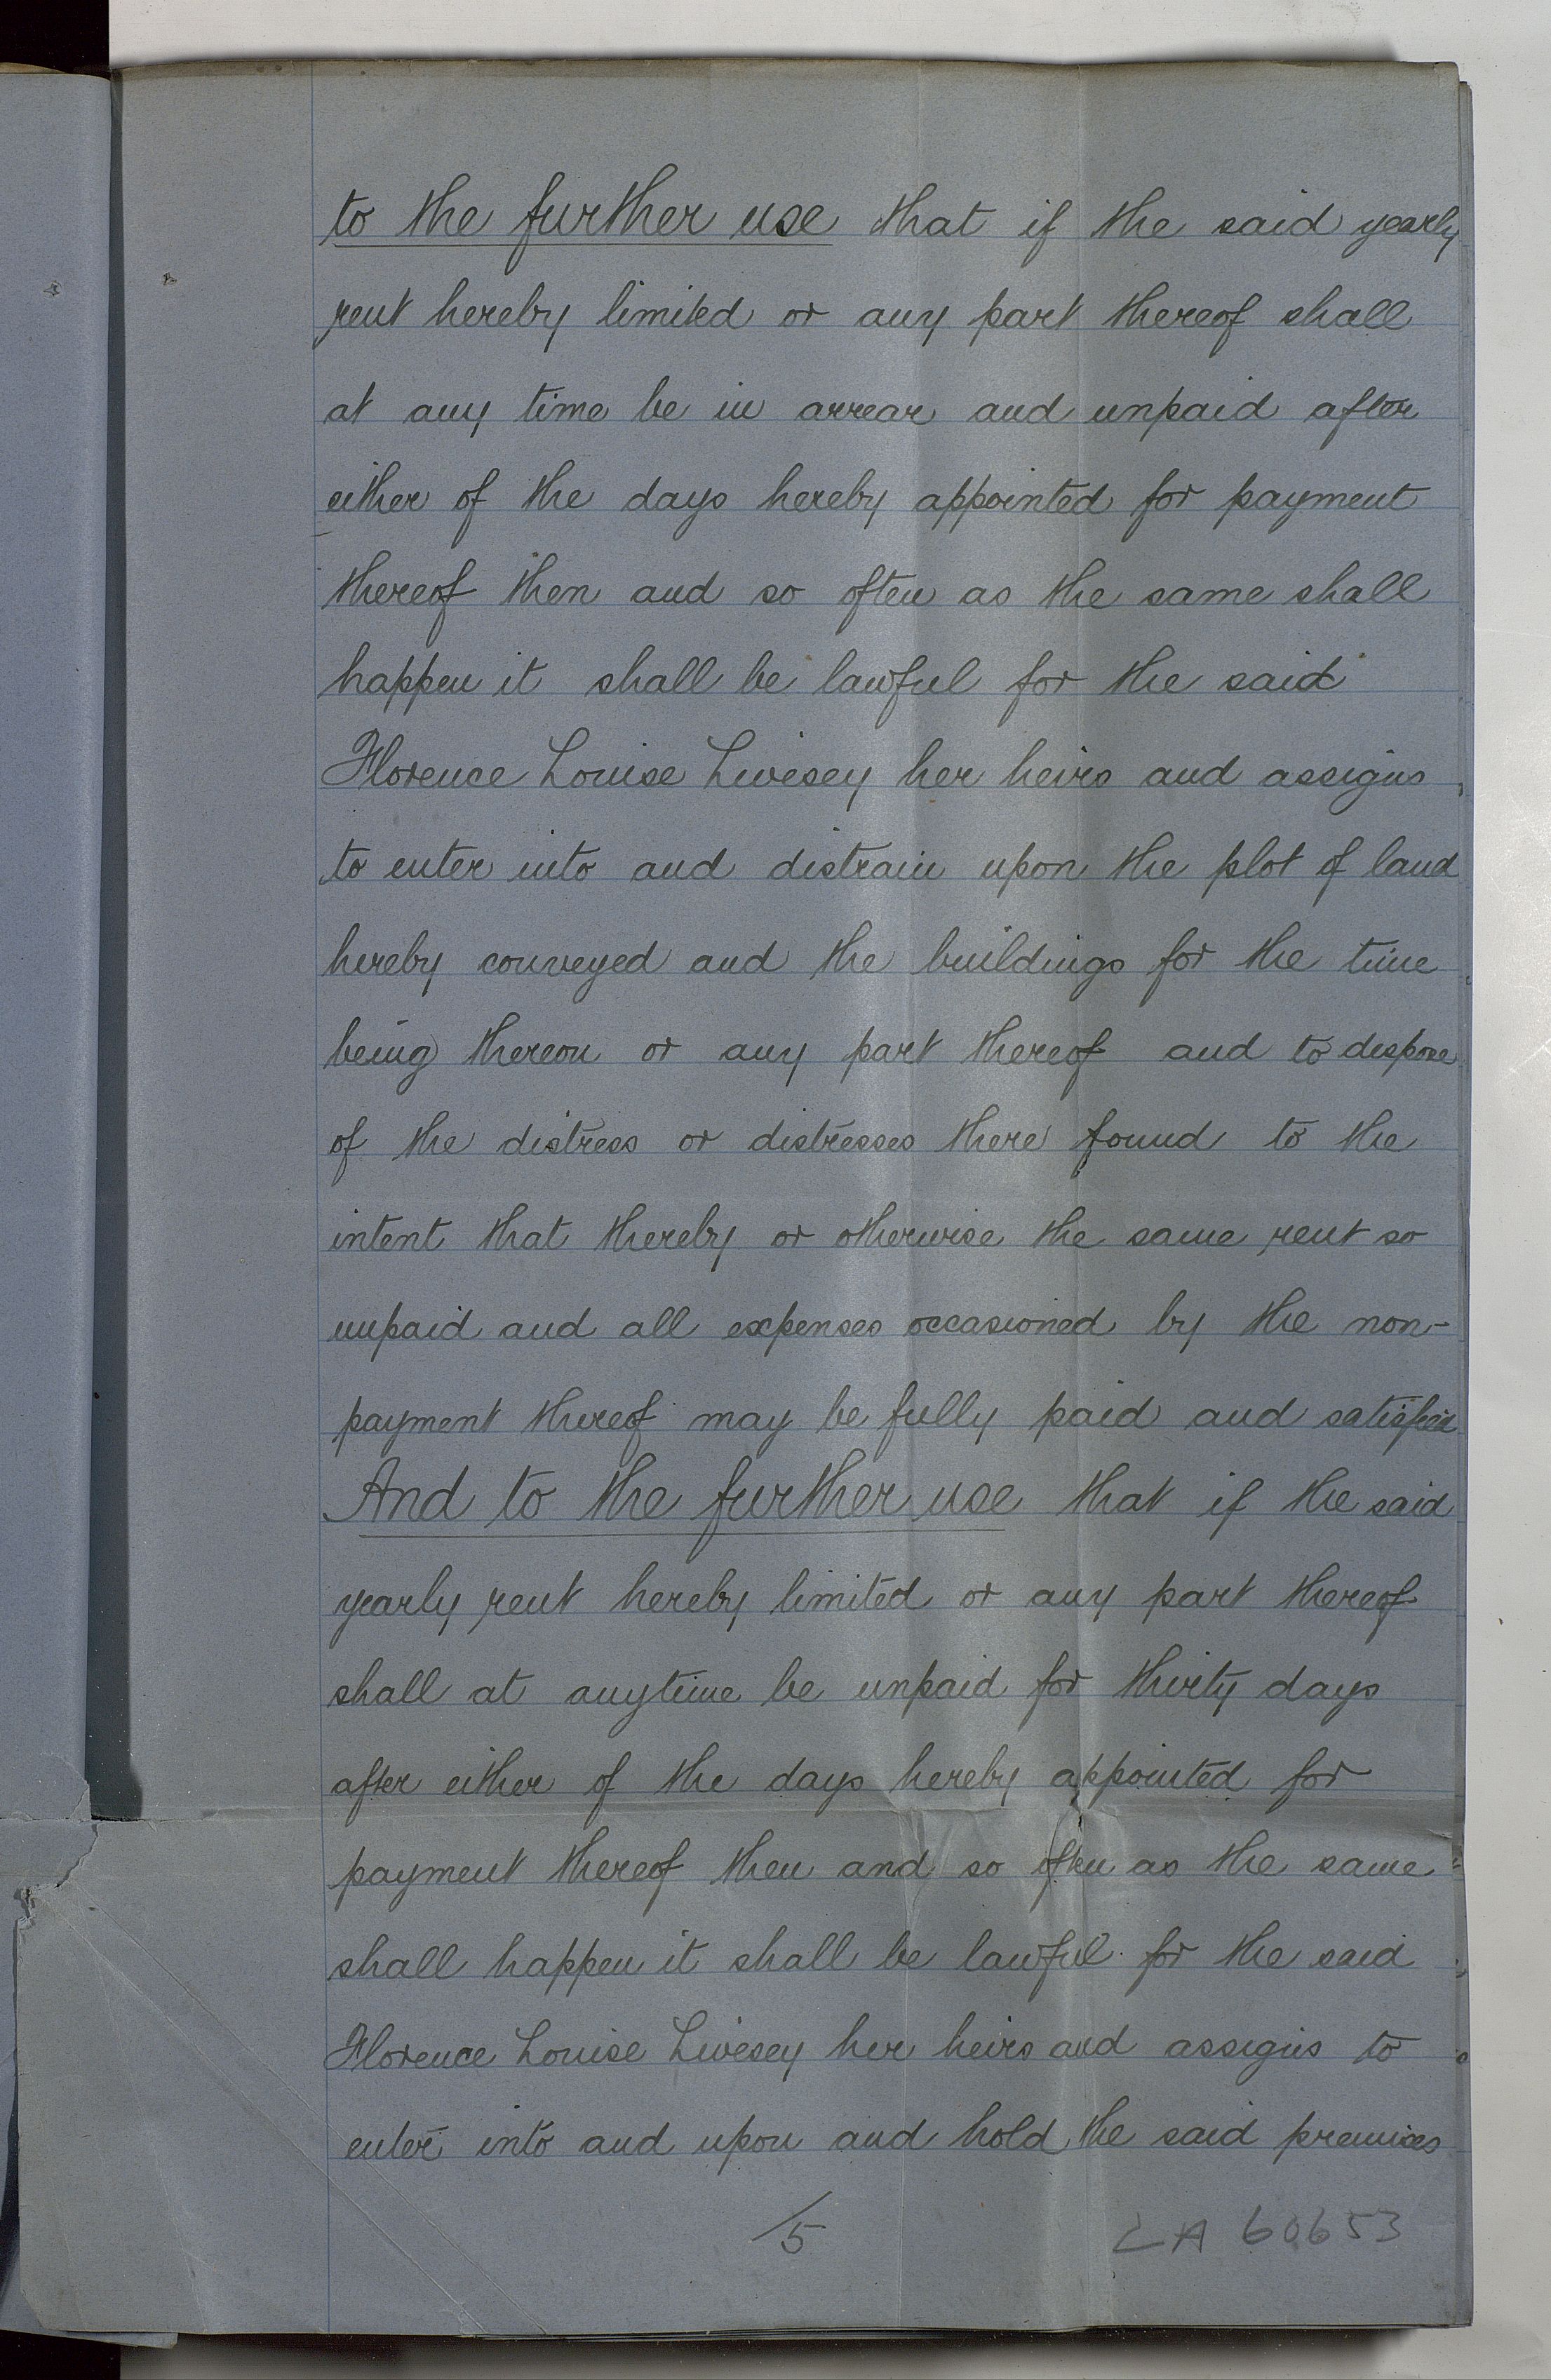 to the further use that if the said yearly
rent hereby limited or any part thereof shall
at any time be in arrear and unpaid after
either of the days hereby appointed for payment
thereof then and so often as the same shall
happen it shall be lawful for the said
Florence Louise Livesey her heirs and assigns
to enter into and distrain upon the plot of land
hereby conveyed and the buildings for the time
being thereon or any part thereof and to dispose
of the distress or distresses there found to the
intent that thereby or otherwise the same rent so
unpaid and all expenses occasioned by the non-
payment thereof may be fully paid and satisfied
And to the further use that if the said
yearly rent hereby limited or any part thereof
shall at anytime be unpaid for thirty days
after either of the days hereby appointed for
payment thereof then and so often as the same
shall happen it shall be lawful for the said
Florence Louise Livesey her heirs and assigns to
enter into and upon and hold the said premises
/5
LA 60653